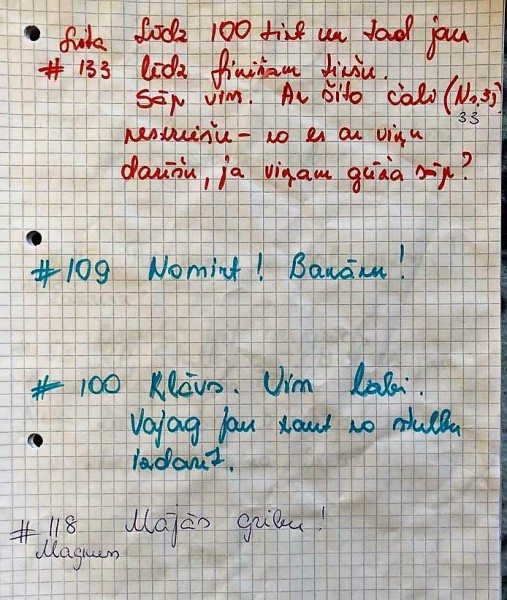 Līdz 100 tikt un tad jau
# 133 līdz finišam tikšu.
Sāp viss. Ar šito čali (Nr.33)
33
neskriešu – ko es ar viņu
darīšu, ja viņam gūža sāp?
# 109 Nomirt! Banānu!
# 100 Klāvs. Viss labi.
Vajag jau kaut ko stulbu
izdarīt.
# 118 Mājās gribu!
Magnuss